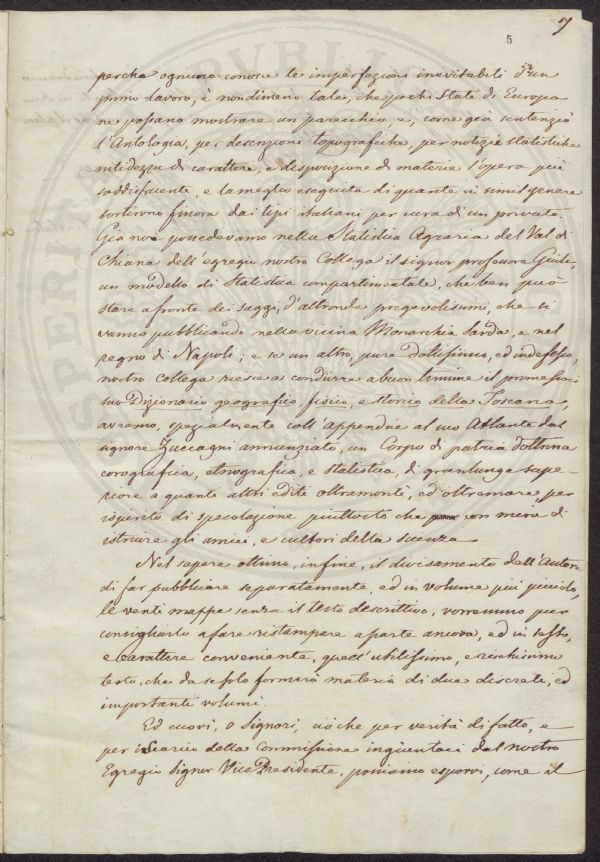 5
perche ognuno conosce le imperfezioni inevitabili d'un
primo lavoro, è nondimeno tale, che pochi Stati di Europa
ne possano mostrare un parecchio, e, come già sentenziò
l'Antologia, per descrizioni topografiche, per notizie statistiche
nitidezza di carattere, e disposizione di materie l'opera più
soddisfacente, e la meglio eseguita di quante in simil genere
sortirono finora dai tipi italiani per cura di un privato.
Già noi possedevamo nella Statistica Agraria del Val di
Chiana dell'egregio nostro Collega il signor professore Giulj,
un modello di Statistica compartimentale, che ben può
stare a fronte dei saggi, d'altronde pregevolissimi, che si
vanno pubblicando nella vicina Monarchia Sarda, e nel
regno di Napoli; e se un altro, pure dottissimo, ed indefesso,
nostro collega riesce a condurre a buon termine il promessoci
suo Dizionario geografico, fisico, e storico della Toscana,
avremo, spezialmente coll'appendice al suo Atlante dal
signore Zuccagni annunziato, un Corpo di patria dottrina
corografica, etnografica, e statistica, di gran lunga supe-
riore a quante altri edite oltramonti, ed oltremare per
ispirito di specolazione piuttosto che con mira di
istruire gli amici, e cultori della scienza.
Nel sapere ottimo, infine, il divisamento dell'Autore
di far pubblicare separatamente, ed in volume più piccolo,
le venti mappe senza il testo descrittivo, vorremmo pur
consigliarlo a fare ristampare a parte ancora, ed in sesto,
e carattere conveniente, quest'utilissimo, e ricchissimo
testo, che da se solo formerà materia di due discreti, ed
importanti volumi.
Ed eccovi, o Signori, ciò che per verità di fatto, e
per iscarico della Commissione ingiuntaci dal nostro
Egregio Signor Vice Presidente, possiamo esporvi, come il